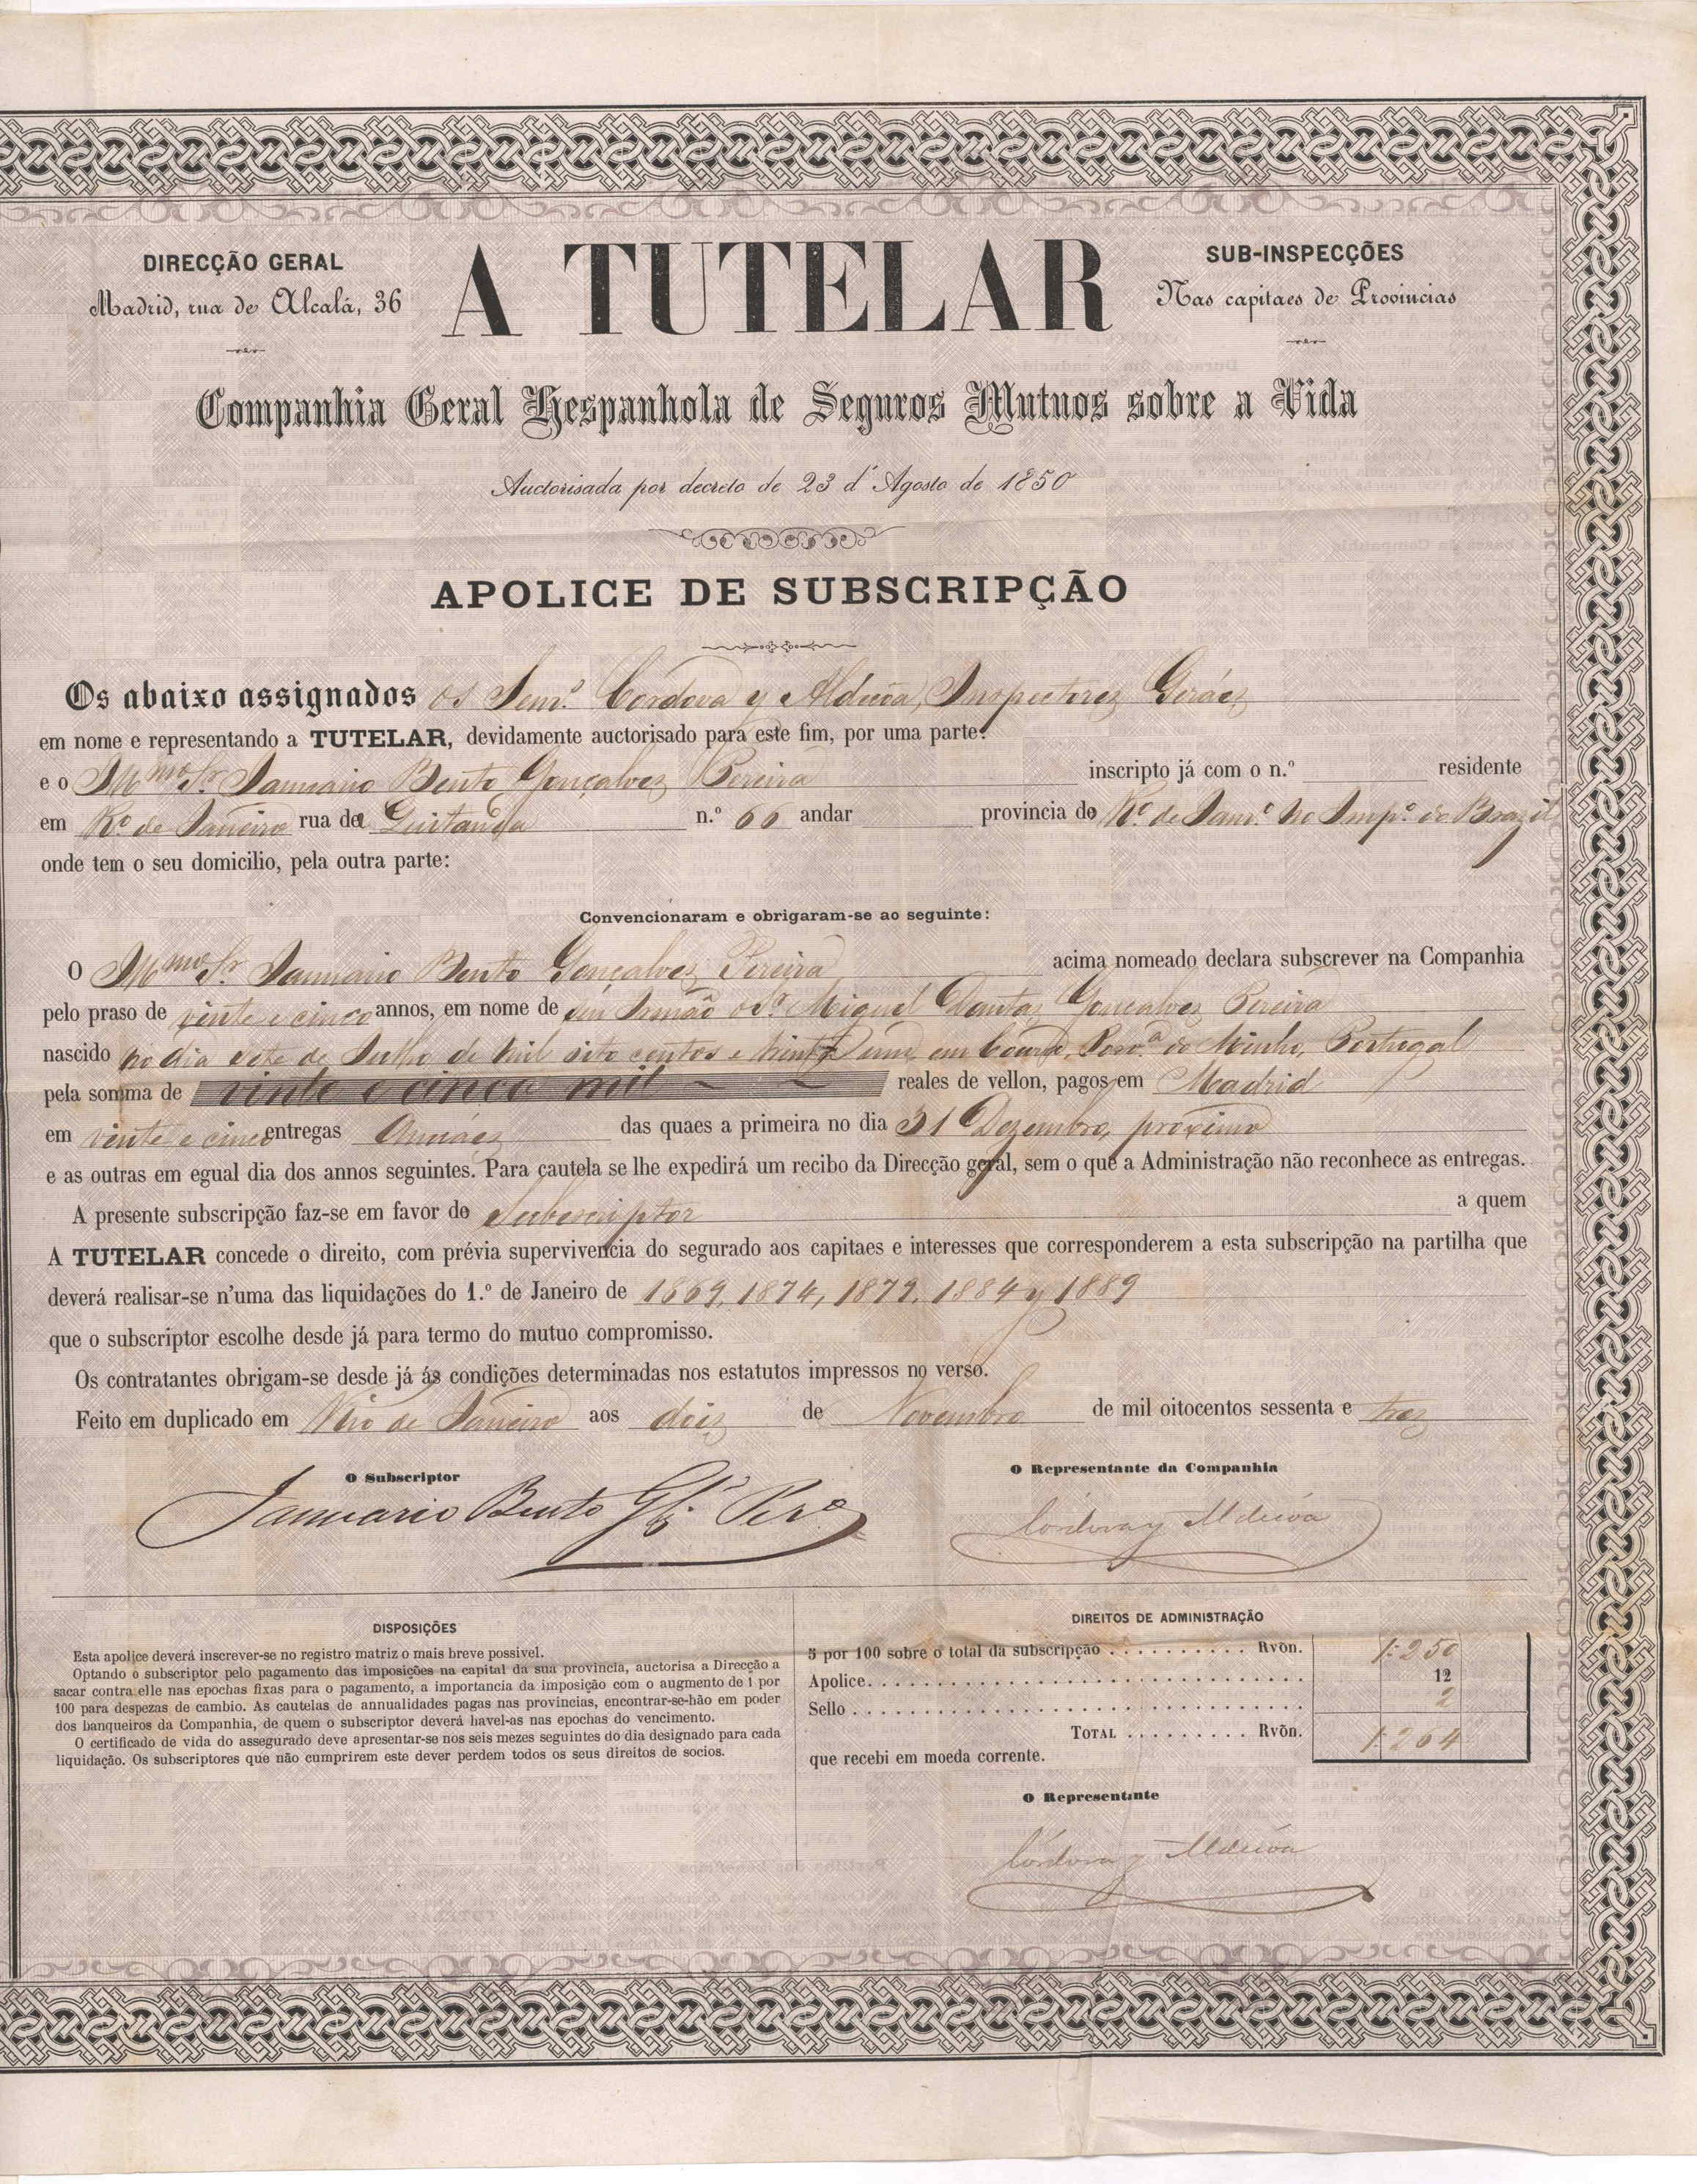 DIRECÇÃO GERAL
Madrid, rua de Alcalá, 36
A TUTELAR
SUB-INSPECÇÕES
Nas capitaes de Provincias
Companhia Geral Hespanhola de Seguros Mutuos sobre a Vida
Auctorisada por decreto de 23 d'Agosto de 1850
APOLICE DE SUBSCRIPÇÃO
Os abaixo assignados os Senr.s Cordova y Inspectores Geráes
em nome e representando a TUTELAR, devidamente auctorisado para este fim, por uma parte:
e o Illmo Sr. Januario Bento Gonçalves Pereira inscripto já com o n.º residente
em Rº de Janeiro rua da Quitanda n.º 66 andar provincia do Rº de Janrº no Impº do Brazil
onde tem o seu domicilio, pela outra parte:
Convencionaram e obrigaram-se ao seguinte:
O Illmo Sr Januario Bento Gonçalves Pereira acima nomeado declara subscrever na Companhia
pelo praso de vinte e cinco annos, em nome de seu Irmaõ o Sr Miguel Dantas Gonçalves Pereira
nascido no dia sete de Julho de mil oito centos e trinta e um, em Coura, do Minho, Portugal
pela somma de vinte e cinco mil reales de vellon, pagos em Madrid
em vinte e cinco entregas Annáes das quaes a primeira no dia 31 Dezembro, proximo
e as outras em egual dia dos annos seguintes. Para cautela se lhe expedirá um recibo da Direcção geral, sem o que a Administração não reconhece as entregas.
A presente subscripção faz-se em favor do Subscriptor a quem
A TUTELAR concede o direito, com prévia supervivencia do segurado aos capitaes e interesses que corresponderem a esta subscripção na partilha que
deverá realisar-se n'uma das liquidações do 1.º de Janeiro de 1869, 1874, 1879, 1884 y 1889
que o subscriptor escolhe desde já para termo do mutuo compromisso.
Os contratantes obrigam-se desde já ás condições determinadas nos estatutos impressos no verso.
Feito em duplicado em Rio de Janeiro aos dois de Novembro de mil oitocentos sessenta e tres
O Subscriptor
O Representante da Companhia
Januario Bento Glz Perª
Cordova y
DISPOSIÇÕES
Esta apolice deverá inscrever-se no registro matriz o mais breve possivel.
Optando o subscriptor pelo pagamento das imposições na capital da sua provincia, auctorisa a Direcção a
sacar contra elle nas epochas fixas para o pagamento, a importancia da imposição com o augmento de 1 por
100 para despezas de cambio. As cautelas de annualidades pagas nas provincias, encontrar-se-hão em poder
dos banqueiros da Companhia, de quem o subscriptor deverá havel-as nas epochas do vencimento.
O certificado de vida do assegurado deve apresentar-se nos seis mezes seguintes do dia designado para cada
liquidação. Os subscriptores que não cumprirem este dever perdem todos os seus direitos de socios.
DIREITOS DE ADMINISTRAÇÃO
5 por 100 sobre o total da subscripção . . . . . . . . . . Rvon. 1:250
Apolice. . . . . . . . . . 12
Sello . . . . . . . . . . 2
TOTAL . . . . . . . . . Rvõn. 1:264
que recebi em moeda corrente.
O Representante
Cordova y